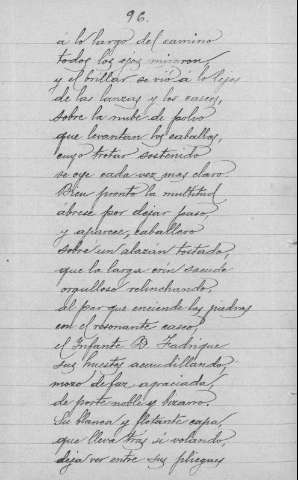 96.
á lo largo del camino
todos los ojos miraron,
y el brillar se vió á lo lejos
de las lanzas y los cascos,
sobre la nube de polvo
que levantan los caballos,
cuyo trotar sostenido
se oye cada vez mas claro.
Bien pronto la multitud
ábrese por dejar paso,
y aparece, caballero
sobre un alazán tostado,
que la larga crin sacude
orgulloso relinchando,
al par que enciende las piedras
con el resonante casco,
el Infante D. Fadrique
sus huestes acaudillando,
mozo de faz agraciada,
de porte noble y bizarro.
Su blanca y flotante capa,
que lleva tras sí volando,
deja ver entre sus pliegues